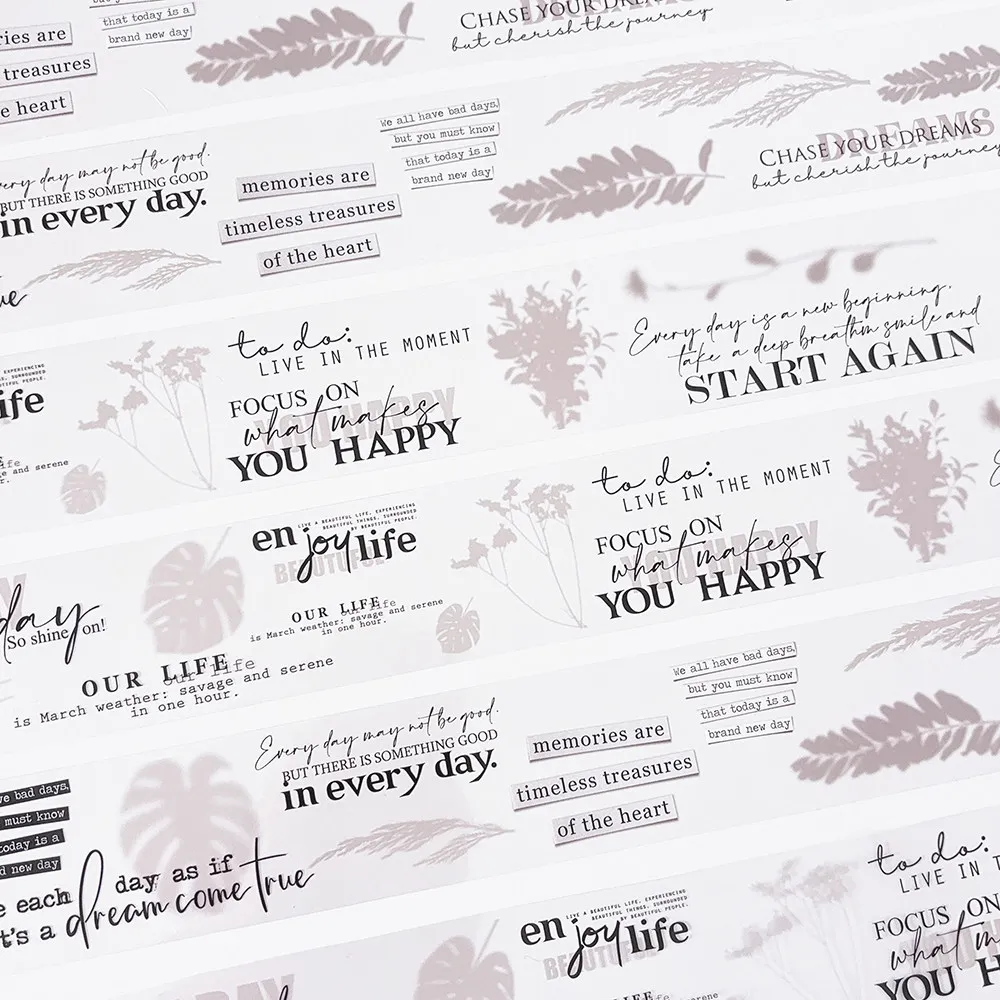 that today is a
brand new day!
ries are
treasures
e heart
DREAMS
CHASE YOUR DREAMS
but cherish the journey
every day may not be good.
BUT THERE IS SOMETHING GOOD
in every day.
memories are
timeless treasures
of the heart
We all have bad days,
but you must know
that today is a
brand new day!
DREAMS
CHASE YOUR DREAMS
but cherish the journey
ue
EXPERIENCING
SURROUNDED
BEAUTIFUL PEOPLE.
life
life
e and serene
r.
to do:
LIVE IN THE MOMENT
FOCUS ON
YOU HAPPY
what makes
YOU HAPPY
Every day is a new beginning,
take a deep breathm smile and
START AGAIN
day
So shine on!
OUR LIFE
our life
is March weather: savage and serene
in one hour.
LIVE A BEAUTIFUL LIFE, EXPERIENCING
BEAUTIFUL THINGS, SURROUNDED
BY BEAUTIFUL PEOPLE.
enjoy life
BEAUTIFUL
OUR LIFE
our life
is March weather: savage and serene
in one hour.
to do:
LIVE IN THE MOMENT
FOCUS ON
YOU HAPPY
what makes
YOU HAPPY
ve bad days,
must know
today is a
d new day
e each day as if
t's a dream come true
Every day may not be good.
BUT THERE IS SOMETHING GOOD
in every day.
memories are
timeless treasures
of the heart
We all have bad days,
but you must know
that today is a
brand new day!
LIVE A BEAUTIFUL LIFE, EXPERIENCING
BEAUTIFUL THINGS, SURROUNDED
BY BEAUTIFUL PEOPLE.
enjoy life
BEAUTIFUL
OUR LIFE
to do:
LIVE IN T
FOCUS ON
what m
YOU H